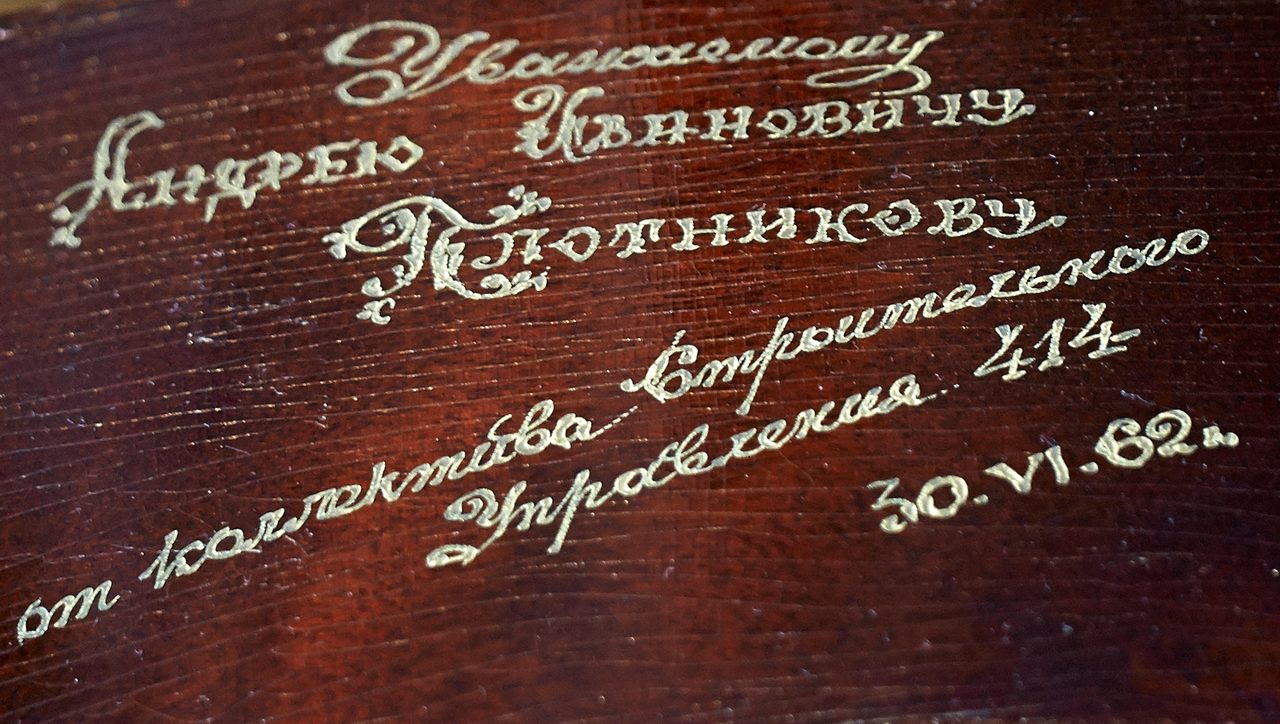 Уважаемому
Андрею Ивановичу
Плотникову.
от коллектива Строительного
Управления 414
30.VI.62г.